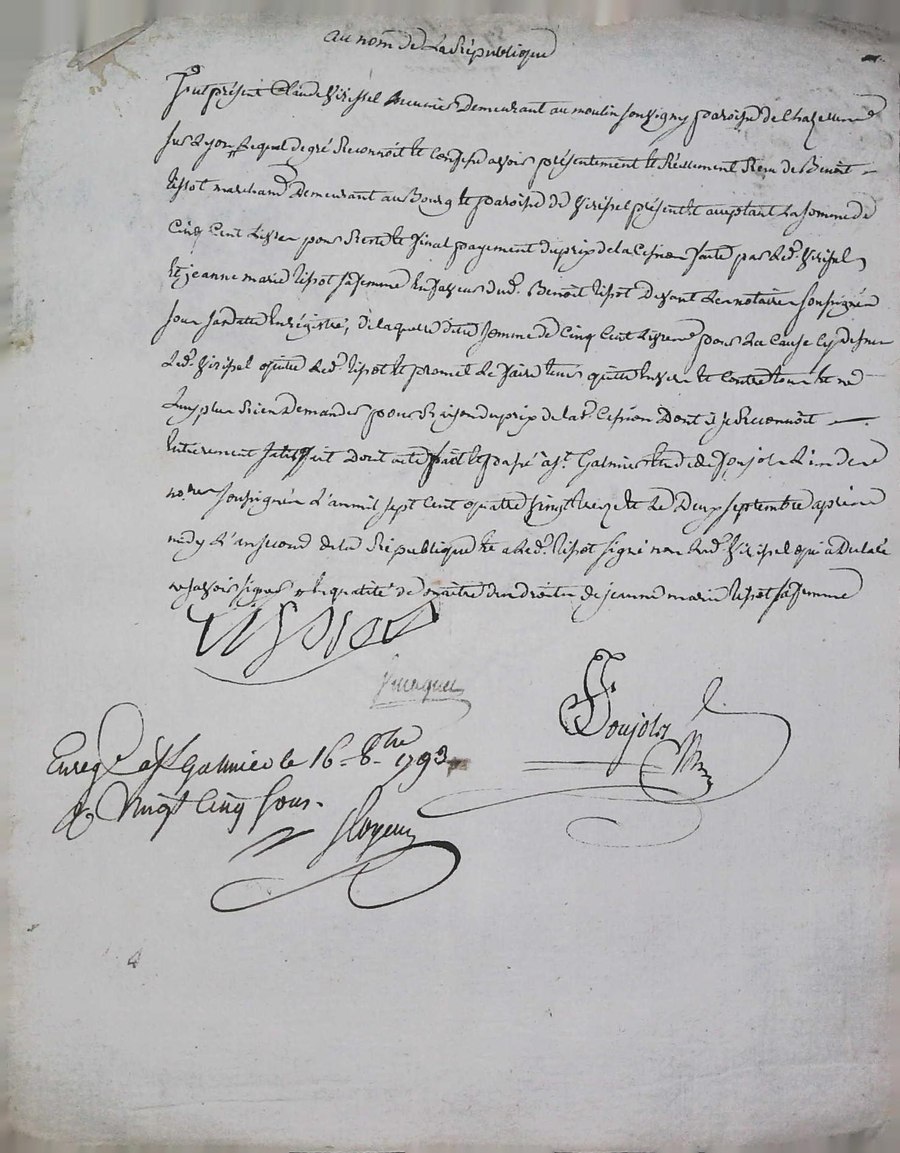 au nom de La République
Fut présent Claude Virissel meunier Demeurant au moulin souvigny paroisse de Chazelles
sur Lyon Lequel de gré Reconnoit et Confesse avoir présentement et Réellement Reçu de Benoit
tissot marchand Demeurant au Bourg et paroisse de Viricel présent et acceptant La somme de
Cinq Cent Livres pour Reste et final payement du prix de la Cession faite par Led. Virissel
Et jeanne marie tissot sa femme En faveur dud. Benoit tissot Devant Les notaires soussignés
jour sa datte Enregistré, de laquelle ditte somme de Cinq Cent Livres pour La Cause Cy dessus
Led. Virissel quitte Led. tissot et promet Le faire tenir quitte Envers et Contre tous et ne
Luy plus Rien Demander pour Raison du prix de lad. Cession Dont il se Reconnoit
Entierement satisfait Dont acte fait et passé a St. Galmier Etude de Soujols L'un des
nores soussignés L'an mil sept Cent quatre vingt treize et Le Deux septembre après
midy L'an second de la République et a Led. tissot signé non Led. Virissel qui a Declaré
ne savoir signer En qualité de maitre des droits de jeanne marie tissot sa femme
tissot
Soujols
Enregé a St Galmier le 16 8bre 1793
R. Vingt Cinq sous.